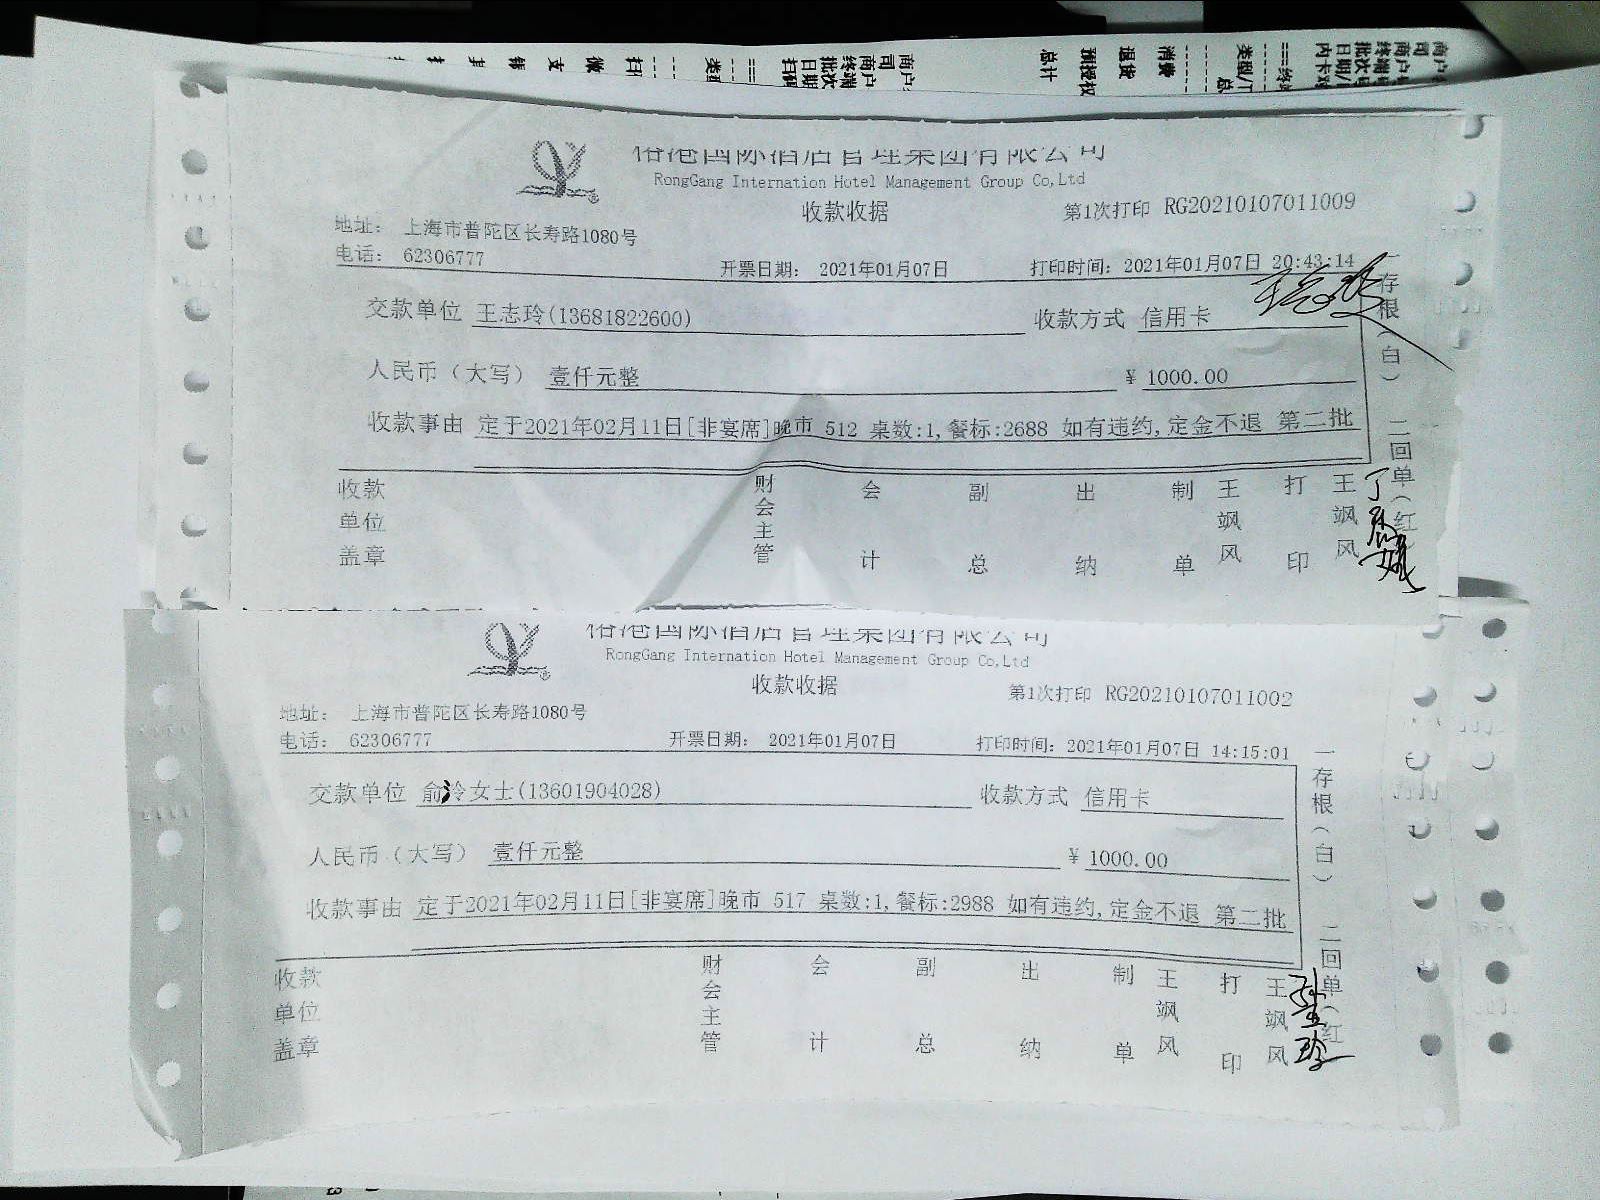 裕港国际酒店管理集团有限公司
RongGang Internation Hotel Management Group Co,Ltd
收款收据
第1次打印 RG20210107011009
地址: 上海市普陀区长寿路1080号
电话: 62306777
开票日期: 2021年01月07日
打印时间: 2021年01月07日 20:43:14
交款单位 王志玲(13681822600)
收款方式 信用卡
人民币(大写) 壹仟元整
¥ 1000.00
收款事由 定于2021年02月11日[非宴席]晚市 512 桌数:1,餐标:2688 如有违约,定金不退 第二批
收款单位盖章
财会主管
会计
副总
出纳
制单
王飒风
打印
王飒风
一存根(白)
二回单(红
裕港国际酒店管理集团有限公司
RongGang Internation Hotel Management Group Co,Ltd
收款收据
第1次打印 RG20210107011002
地址: 上海市普陀区长寿路1080号
电话: 62306777
开票日期: 2021年01月07日
打印时间: 2021年01月07日 14:15:01
交款单位 俞泠女士(13601904028)
收款方式 信用卡
人民币(大写) 壹仟元整
¥ 1000.00
收款事由 定于2021年02月11日[非宴席]晚市 517 桌数:1,餐标:2988 如有违约,定金不退 第二批
收款单位盖章
财会主管
会计
副总
出纳
制单
王飒风
打印
王飒风
一存根(白)
二回单(红